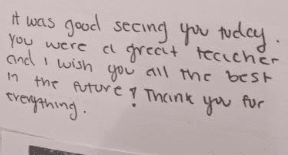 it was good seeing you today.
You were a great teacher
and i wish you all the best
in the future! Thank you for
everything.